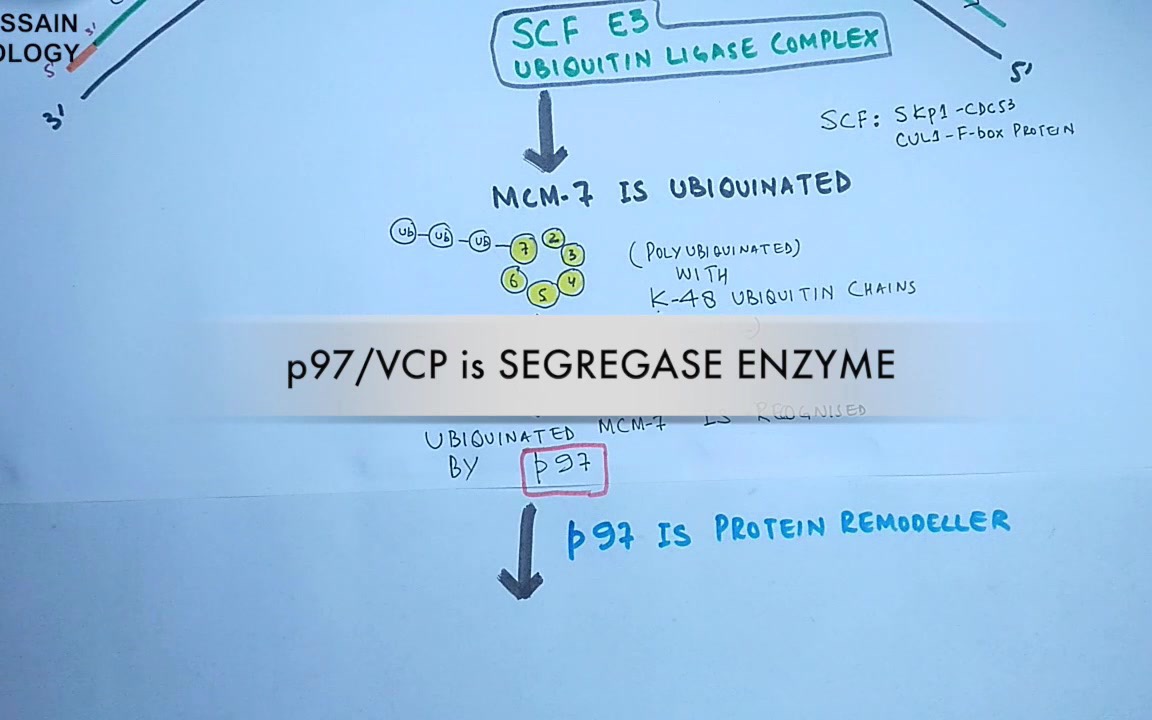 SSAIN
OLOGY
3'
5
3'
5'
SCF E3
UBIQUITIN LIGASE COMPLEX
SCF: SKp1-CDC53
CUL1-F-box PROTEIN
MCM-7 IS UBIQUINATED
Ub Ub Ub 7 2 3 4 5 6
(POLYUBIQUINATED)
WITH
K-48 UBIQUITIN CHAINS
p97/VCP is SEGREGASE ENZYME
UBIQUINATED MCM-7 IS RECOGNISED
BY p97
p97 IS PROTEIN REMODELLER